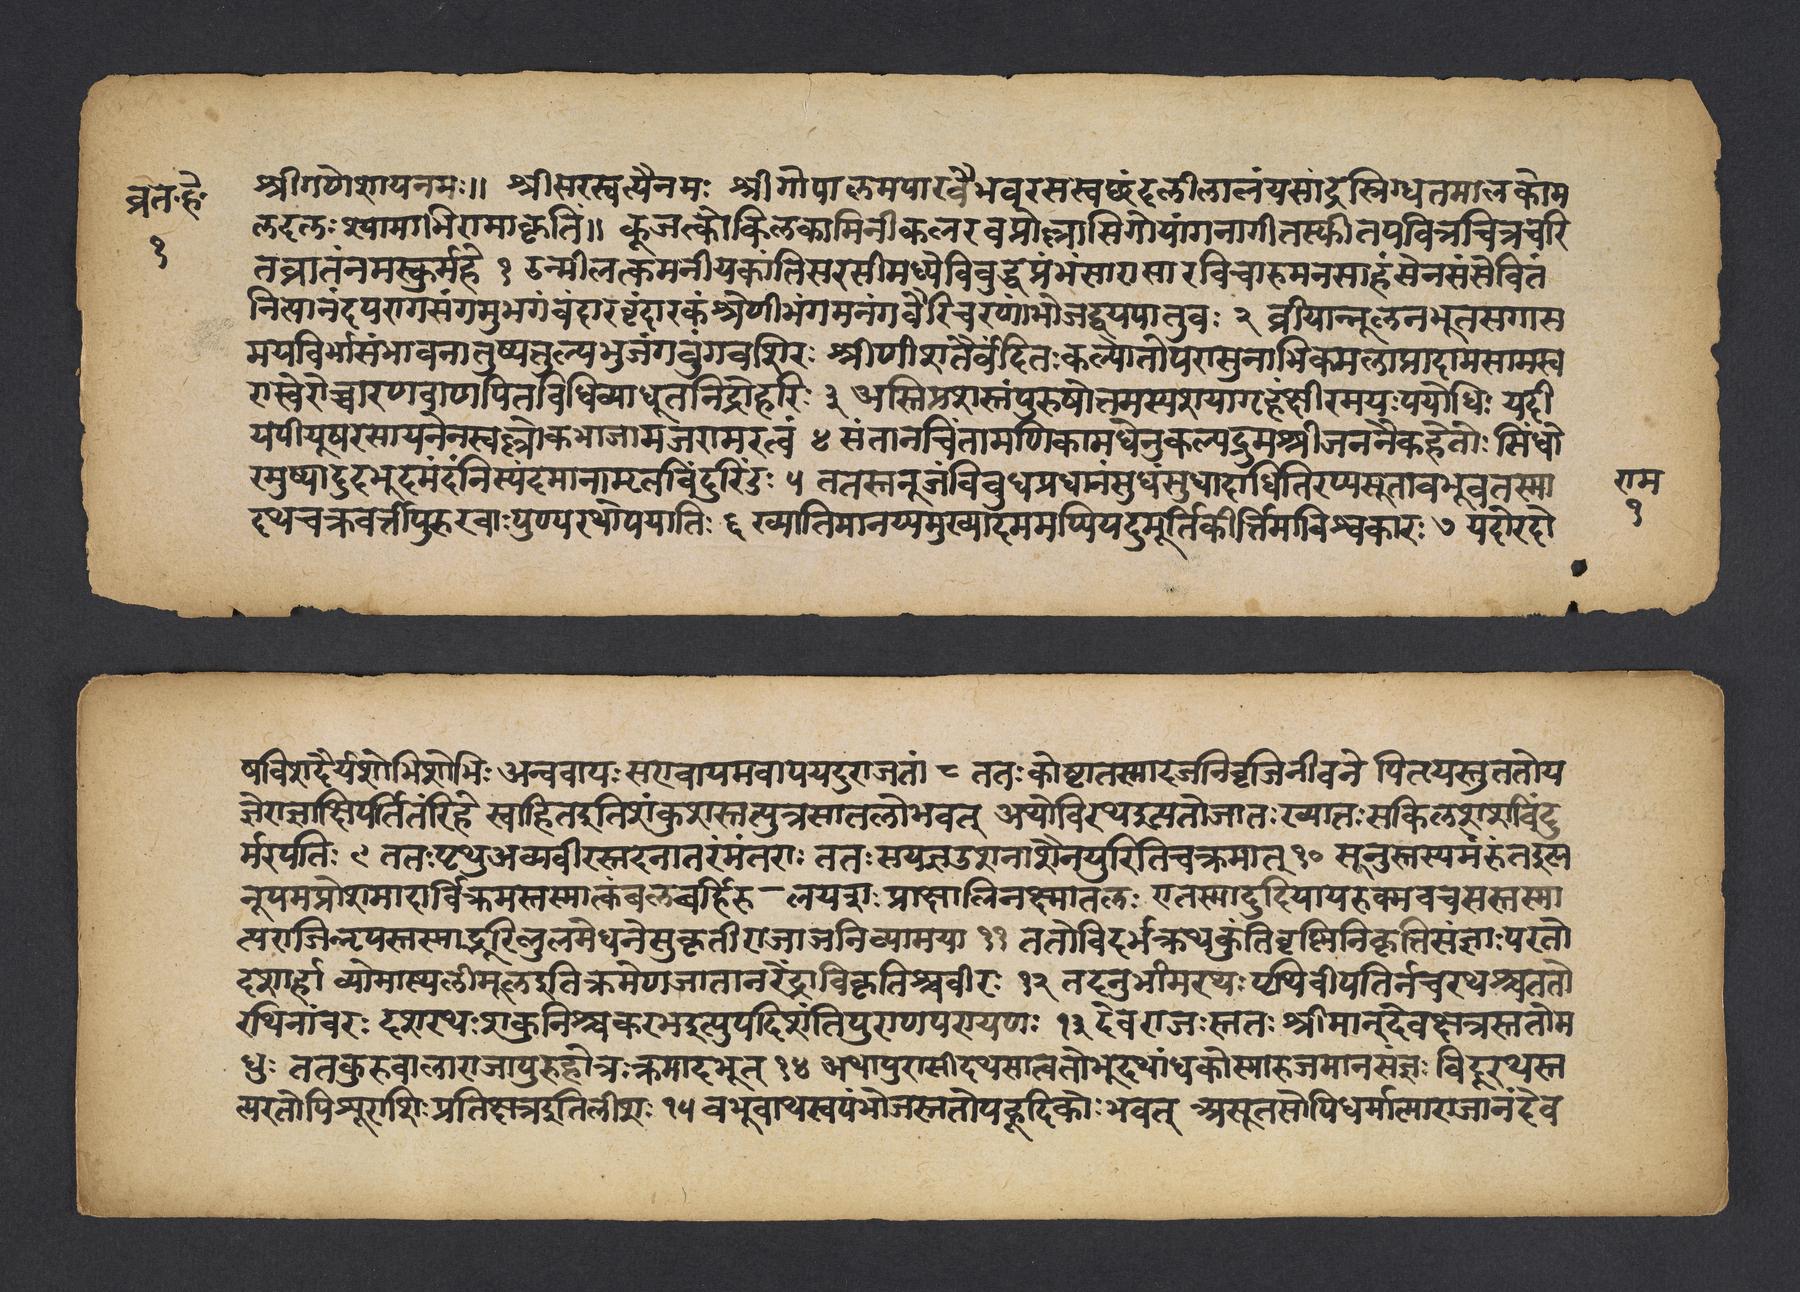 श्रीगणेशायनमः॥ श्रीसरस्वत्यैनमः श्रीगोपालमपारवैभवरसस्वछंदलीलालंयसांद्रस्निग्धतमालकोम
व्रत.हे.
१
लदलःश्यामाभिरामाकृतिं॥ कूजत्कोकिलकामिनीकलरवप्रोल्लासिगोपांगनागीतस्फीतपवित्रचित्रचरि
तव्रातंनमस्कुर्महे १ उन्मीलत्कमनीयकांतिसरसीमध्येविवुद्धेप्रंभंसारासारविचारुमनसाहंसेनसंसेवितं
नित्यानंदपरागसंगमुभगंवंदारवृंदारकंश्रेणीभंगमनंगवैरिचरणांभोजद्वयपातुवः २ व्रीयान्नूलनभूतसगास
मयविर्भासंभावनातुष्यत्तुल्यभुजंगवुंगवशिरः श्रीणीशतैर्वंदितःकल्यातोपरासुनाभिकमलाप्रादामसामस्व
रास्वेरोच्चारणवाणपितविधिव्याधूतनिद्रोहरिः ३ अस्तिप्रशस्तंपुरुषोत्तमस्यशयागृहंक्षीरमयःपयोधिः यदी
यंपीयूषरसायनेनस्वर्लोकभाजामजरामरत्वं ४ संतानचिंतामणिकामधेनुकल्पद्रुमश्रीजननैकहेतोः सिंधो
रमुष्यादुदभूदमंदंनिस्यंदमानामृतविंदुरिंदुः ५ ततस्तनूजंविवुधप्रधानंसुधंसुधादीधितिरप्यसूतावभूवतस्मा
राम
१
दथचक्रवर्त्तीपुरुरवाःपुण्यरथोपयातिः ६ ख्यातिमानय्यमुख्यादममप्यियदुमूर्तिकीर्त्तिमाविश्चकारः ७ यदोरदो
षविशदैर्यशोभिशोभिः अन्ववायःसरावायमवापयदुराजतां ८ ततःक्रोष्टातस्मादजनिवृजिनीवने पितत्यस्तुततोय
ज्ञेराज्ञाक्षिपर्तितंरिहे स्वाहितदुतिशंकुशस्तत्पुत्रसातलोभवत् अथोविरथदुसतोजातःख्यातःसकिलशशविंदु
र्मरपतिः ९ ततःपृथुअव्यवीरस्तदनातरंमंतराः ततःसयज्ञउशनाशैनपुरितिचक्रमात् १० सूनुस्तस्यमंरुंतदुस्त
नूपमप्रोशमाराविक्रमस्तस्मात्कंबलबर्हिरु लयत्राः प्राक्षालिनक्ष्मातलः एतस्मादुदियायरुक्मवचसस्तस्मा
त्पराजिन्टपस्तस्माद्भूरिलुलमेधनेसुकृतीराजाजनिव्यामया ११ ततोविदर्भक्रथकुंतिवृष्मिनिकृतिसंज्ञाःपरतो
दशार्हा व्योमास्यजीमूतदुतिक्रमेणजातानरेंद्राविकृतिश्चवीरः १२ तदनुभीमरथःपृथिवीपतिर्नवरथश्चततो
रथिनांवरः दशरथःशकुनिश्चकरभदुत्युपदिशंतिपुराणपरायणः १३ देवराजःस्ततः श्रीमान्देवक्षत्रस्ततोम
धुः ततकुरुवालाराजापुरुहोत्रःक्रमादभूत् १४ अथापुरासीदथसात्वतोभूदथांधकोस्मारुजमानसंज्ञः विदूरथस्त
त्परतोपिशूराशिःप्रतिक्षत्रदुतिलीशः १५ वभूवाथस्वयंभोजस्ततोपहूदिकोःभवत् असूतसोपिधर्मात्माराजानंदेव